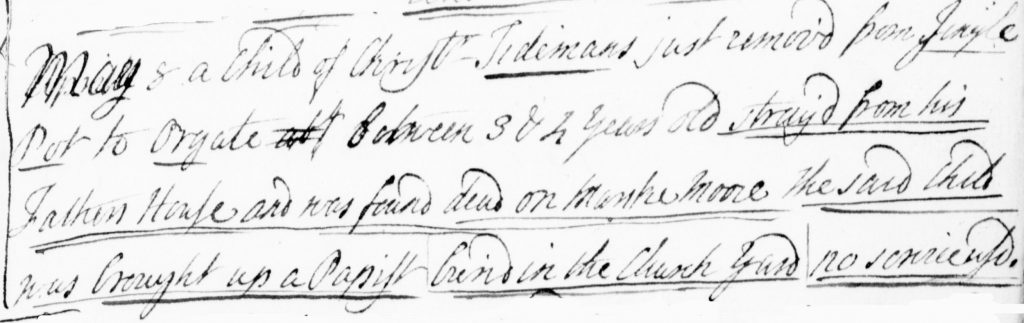 May 8 a Child of Christr Tidemans just remov'd from Jingle
Pot to Orgate between 3 & 4 Years old stray'd from his
Fathers House and was found dead on Marske Moore the said Child
was brought up a Papist buried in the Church Yard no service us'd.